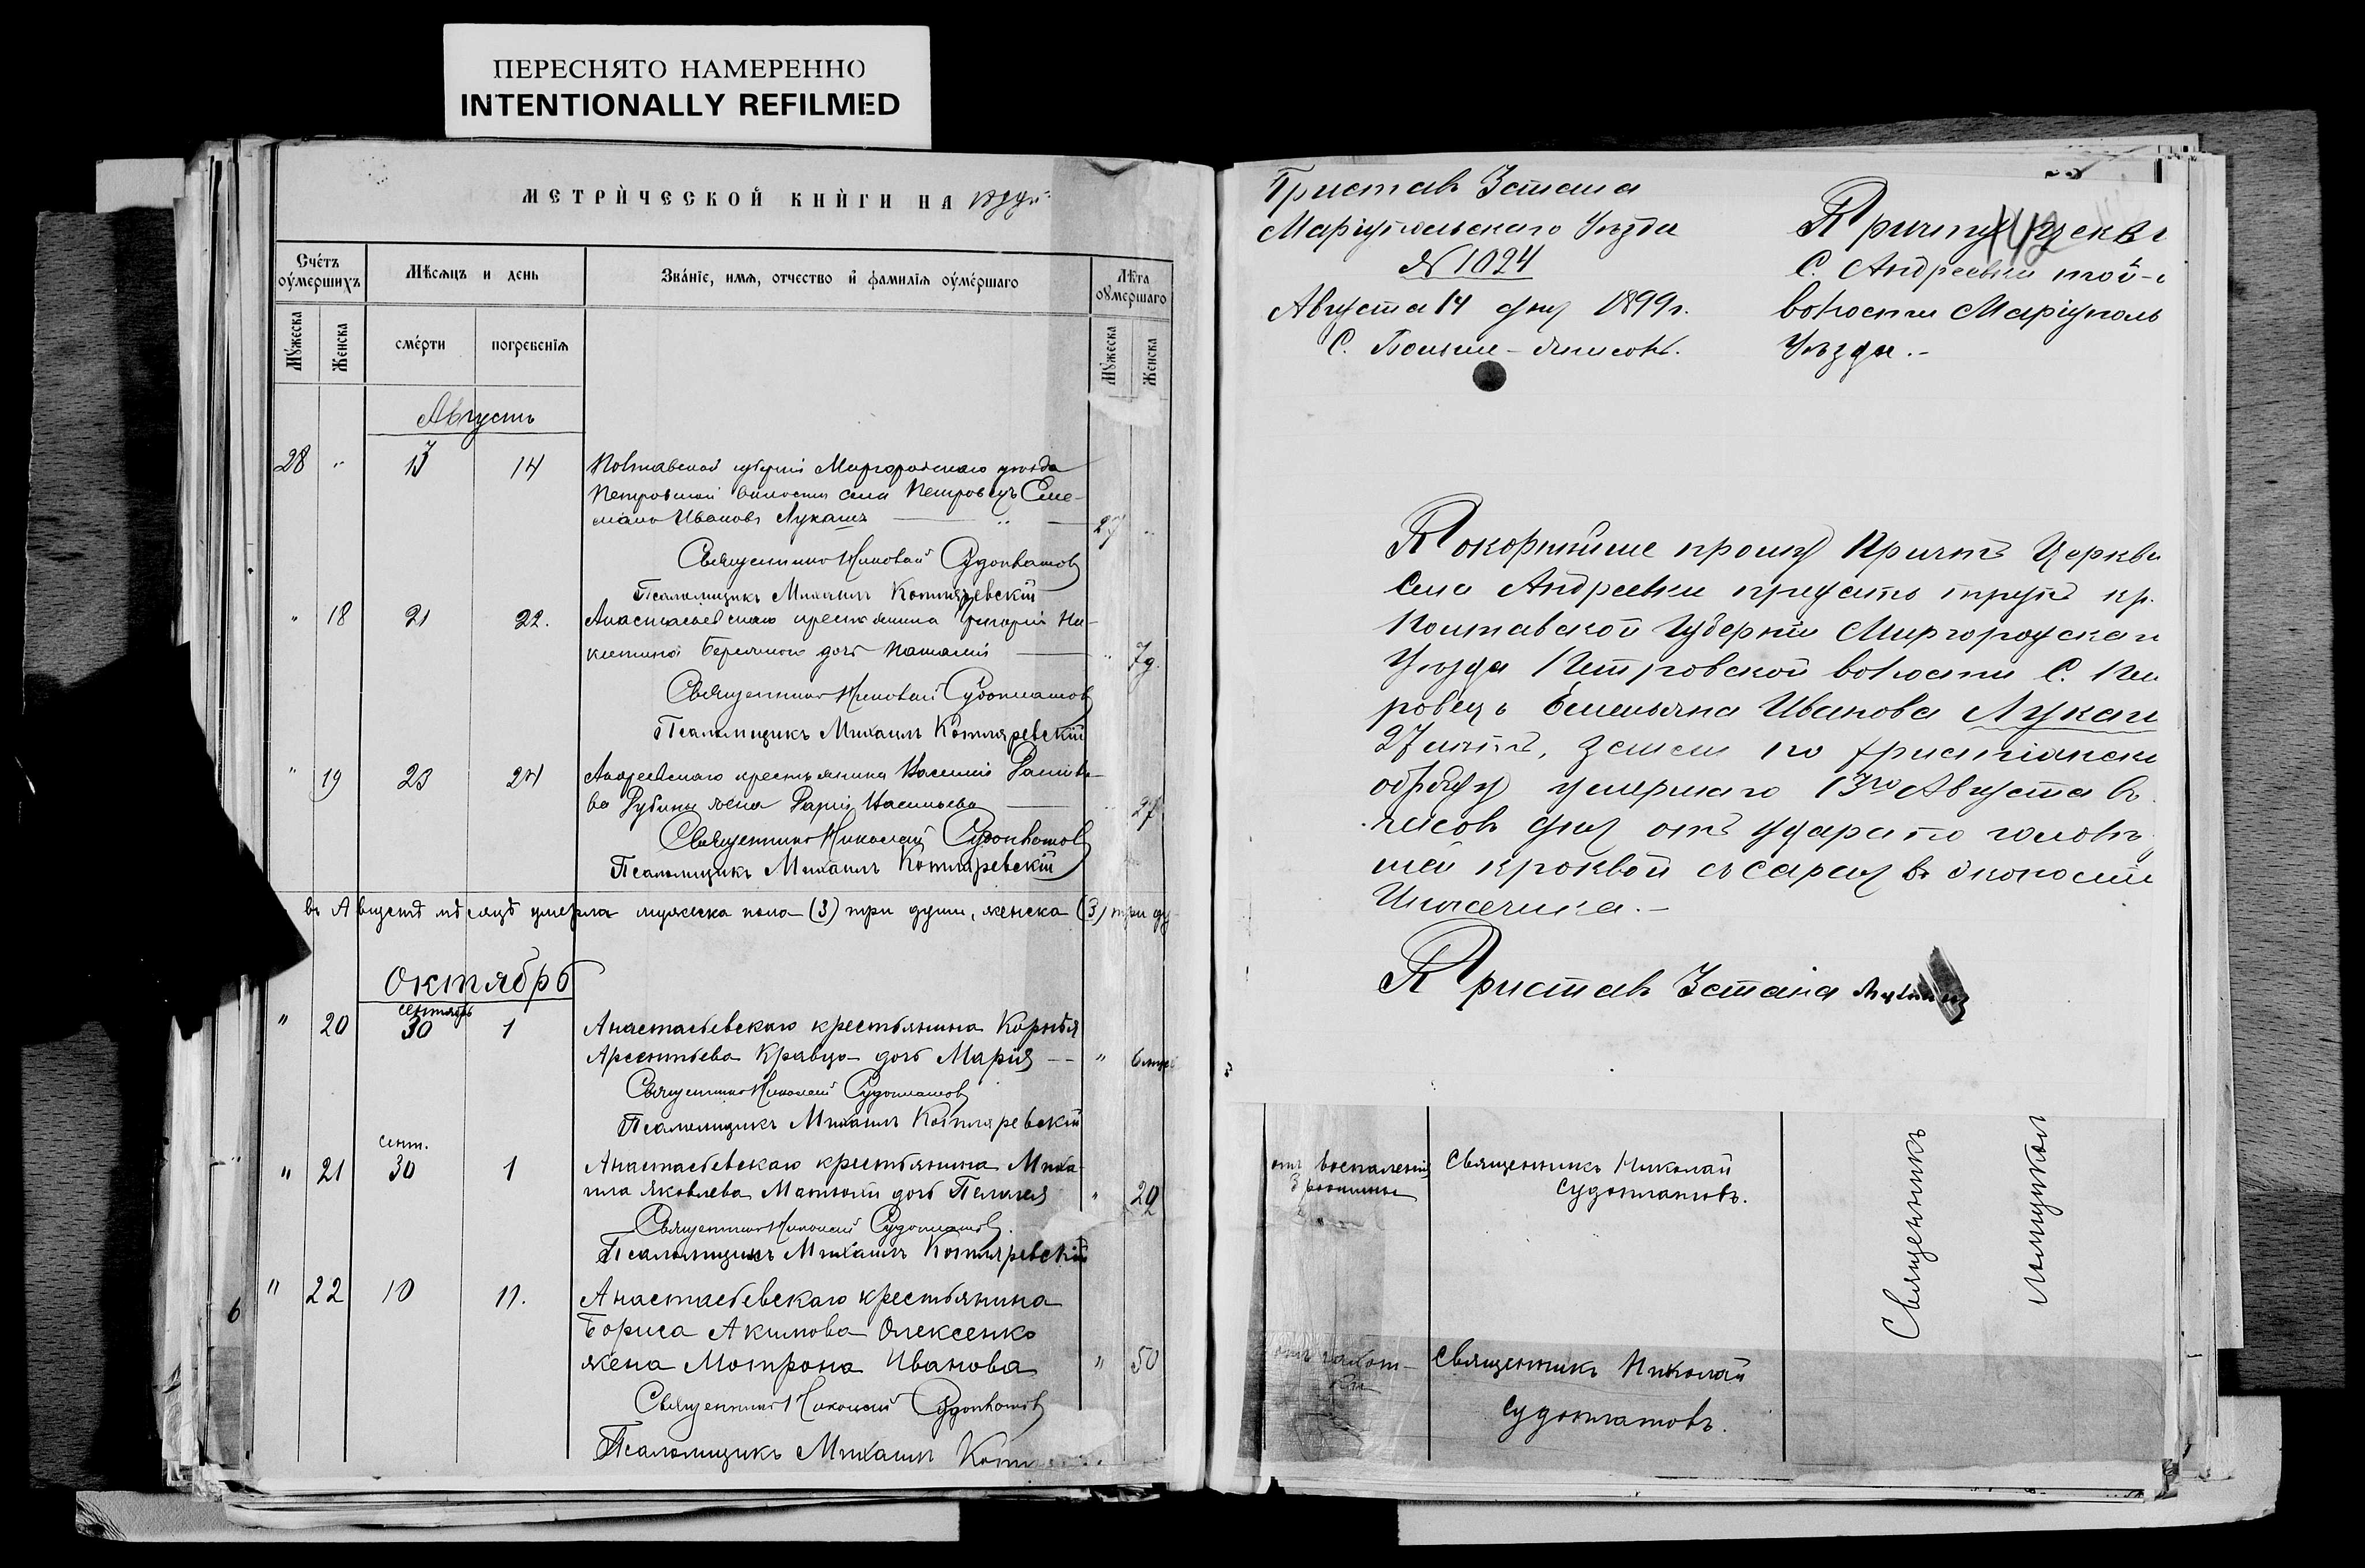 ПЕРЕСНЯТО НАМЕРЕННО
INTENTIONALLY REFILMED
МЕТРИ́ЧЕСКОЙ КНИ́ГИ НА 1899й
Сче́тъ оу҆ме́ршихъ
Мѣсяцъ и день
Зва́нїе, имя, отчество и҆ фамилїя оу҆ме́ршаго
Лѣта оу҆мершаго
Мꙋжеска
Женска
сме́рти
погребенїя
Мꙋжеска
Женска
Августъ
28 " 13 14 Полтавской губерніи Миргородскаго уѣзда
Петровской волости села Петровецъ Еме-
ліанъ Ивановъ Лукашъ 27 "
Священникъ Николай Судоплатовъ
Псаломщикъ Михаилъ Котляревскій
" 18 21 22. Анастасіевскаго крестьянина Григорія Ни-
китина дочь Наталія " 7д.
Священникъ Николай Судоплатовъ
Псаломщикъ Михаилъ Котляревскій
" 19 23 24 Андреевскаго крестьянина Василія
жена Дарія Васильева " 27
Священникъ Николай Судоплатовъ
Псаломщикъ Михаилъ Котляревскій
въ Августѣ мѣсяцѣ умерло мужеска пола (3) три души, женска (3) три ду
Октябрь
сентябрь
" 20 30 1 Анастасьевскаго крестьянина Корнѣя
Арсентьева Кравцо дочь Марія -- "
Священникъ Николай Судоплатовъ
Псаломщикъ Михаилъ Котляревскій
сент.
" 21 30 1 Анастасьевскаго крестьянина Миха-
ила Яковлева дочь Пелагея "
Священникъ Николай Судоплатовъ.
Псаломщикъ Михаилъ Котляревскій
" 22 10 11. Анастасьевскаго крестьянина
Бориса Акимова Олексенко
жена Мотрона Иванова " 50
Священникъ Николай Судоплатовъ
Псаломщикъ Михаилъ
6
Приставъ 3 стана
Маріупольскаго Уѣзда
N 1024
Августа 14 дня 1899г.
С. Больше-Янисоль.
142
Причту Церкви
С. Андреевки той-
волости Маріуполь
Уѣзда.-
Покорнѣйше прошу Причтъ Церкви
Села Андреевки предать трупъ кр.
Полтавской Губерніи Миргородска
Уѣзда Петровской волости С. Пет
ровецъ Емельяна Иванова Лукаш
27 лѣтъ, землѣ по христіанск
обряду умершаго 13го Августа въ
часовъ дня отъ удара по головѣ
шей кроквой съ сарая въ экономіи
Приставъ 3 стана
отъ воспаленія
Священникъ Николай
Судоплатовъ.
Священникъ Николай
Судоплатовъ.
Священникъ